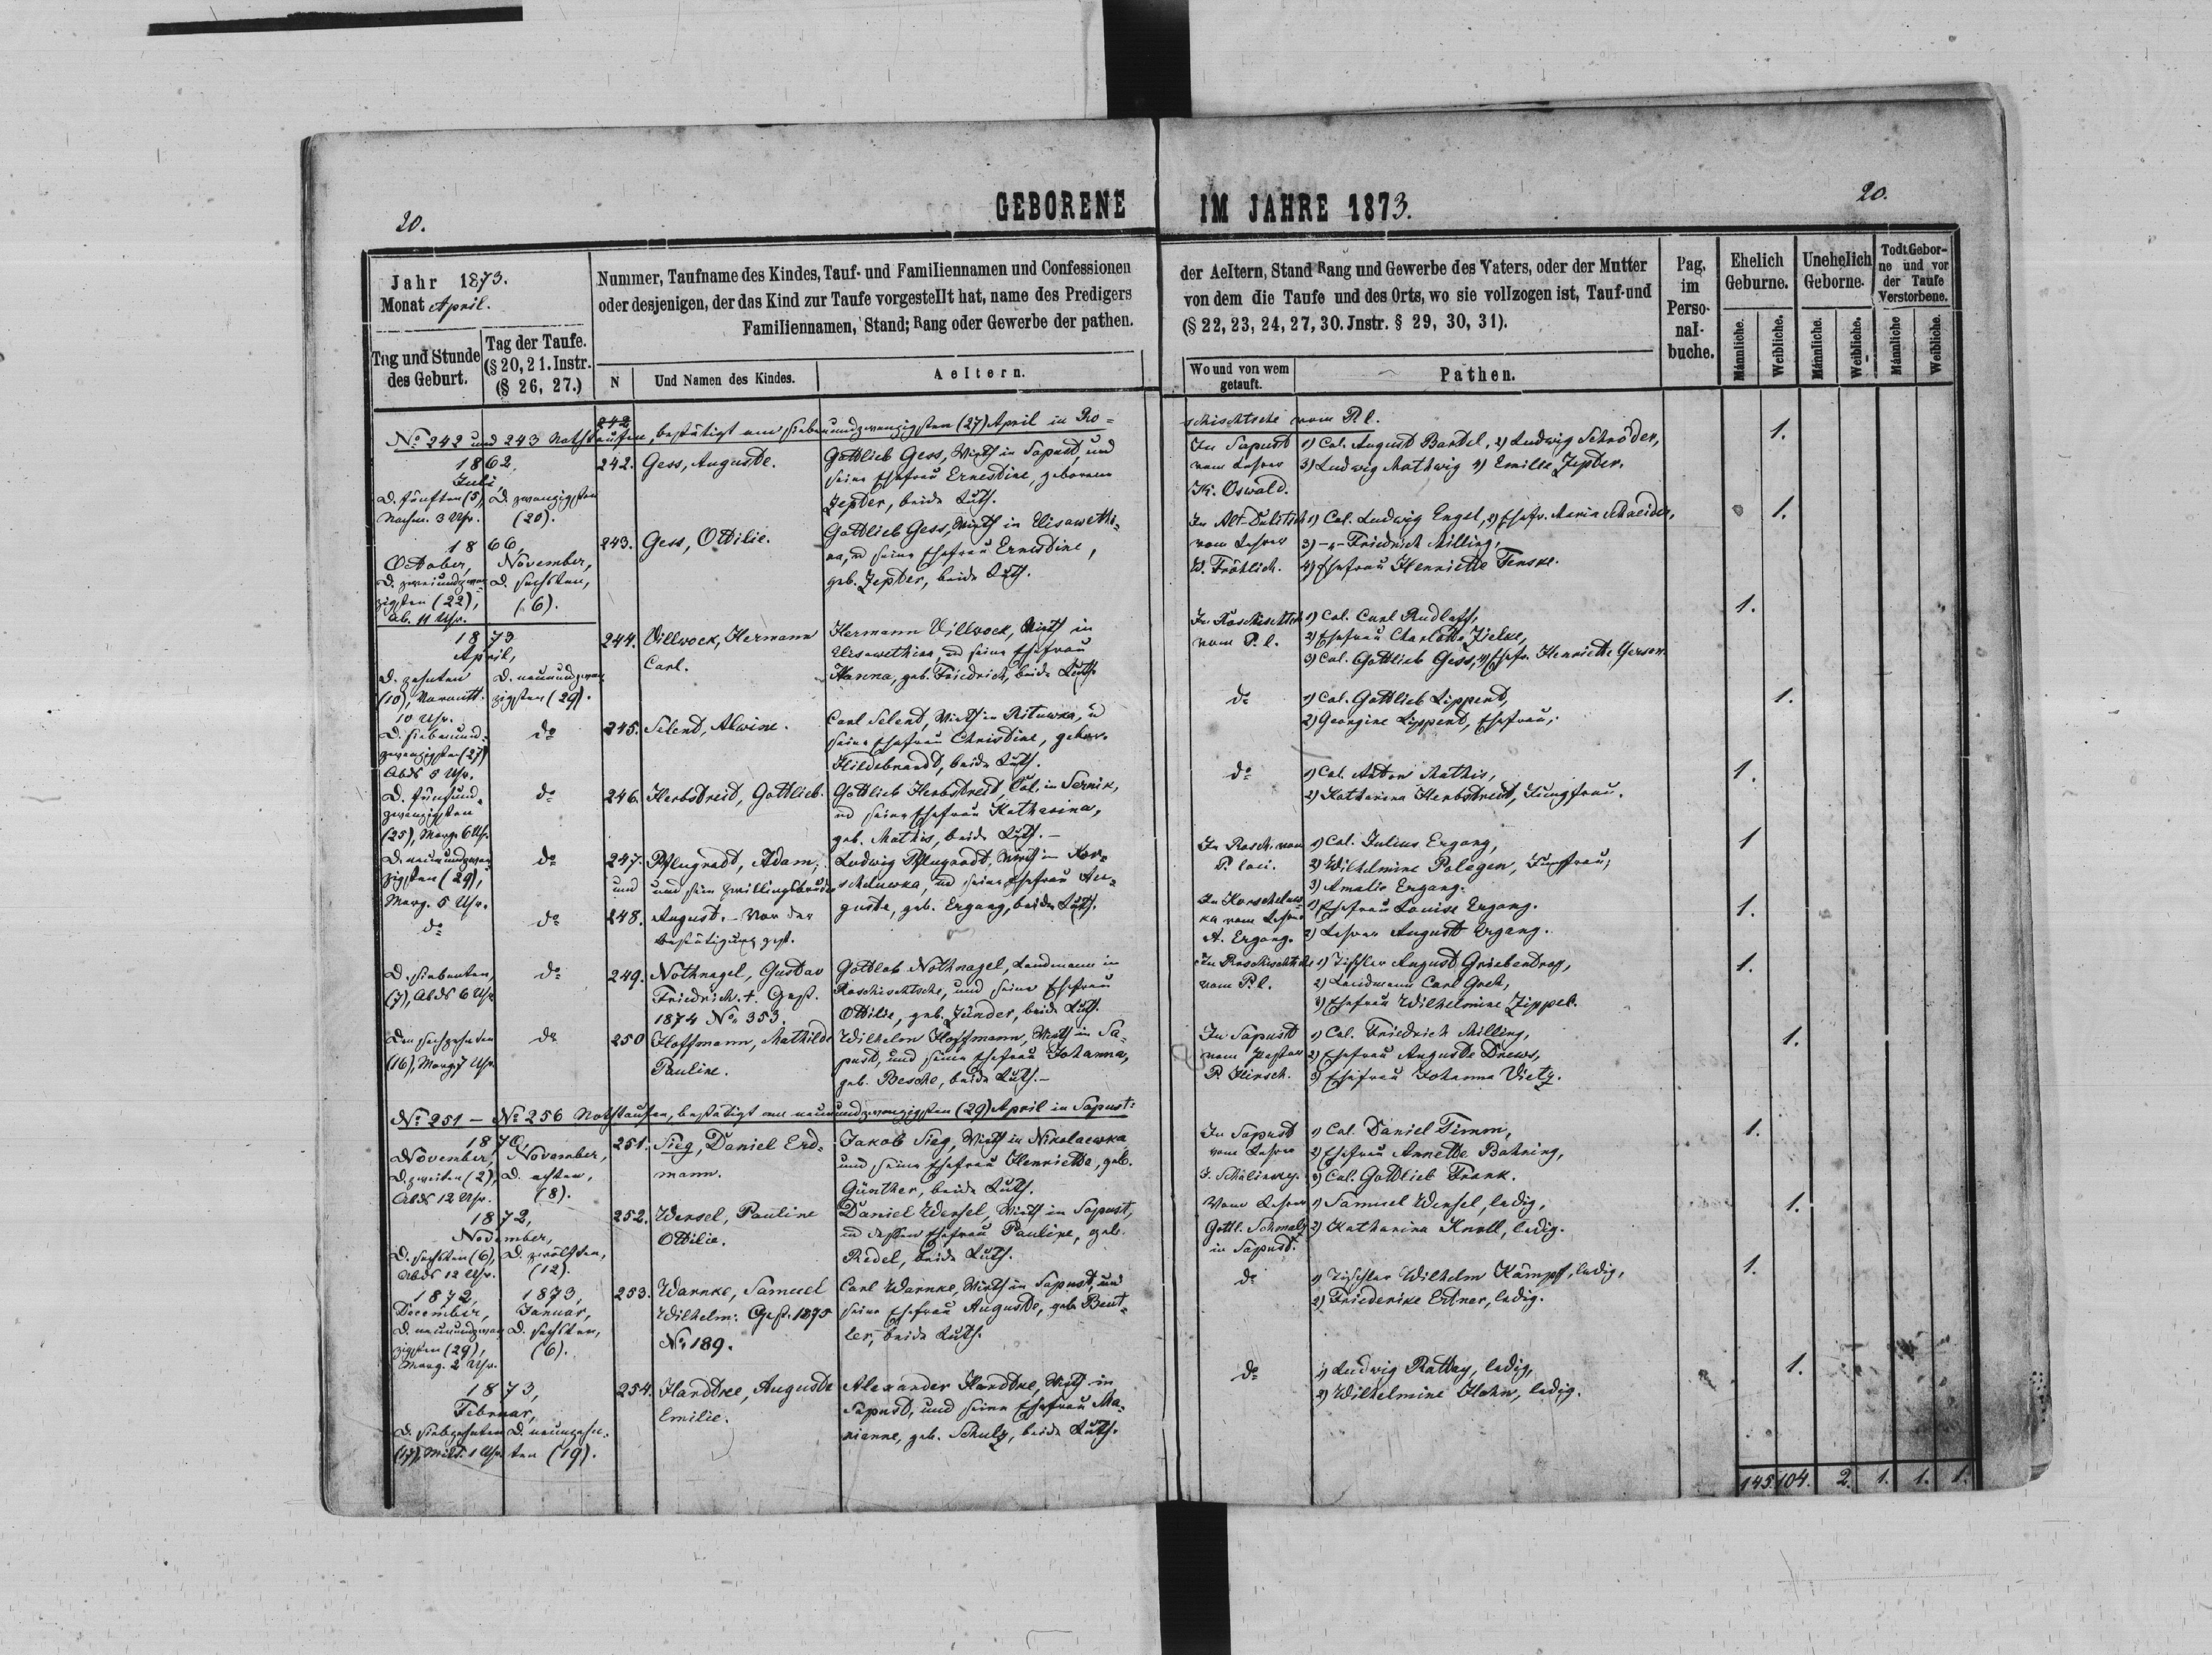 20.
GEBORENE
Jahr 1873.
Monat April.
Nummer, Taufname des Kindes, Tauf- und Familiennamen und Confessionen
oder desjenigen, der das Kind zur Taufe vorgestellt hat, name des Predigers
Familiennamen, Stand; Rang oder Gewerbe der pathen.
Tag und Stunde
des Geburt.
Tag der Taufe.
(§ 20, 21. Instr.
(§ 26, 27.)
N
Und Namen des Kindes.
Aeltern.
242
No. 242 und 243 Nothtaufen, bestätigt am siebenundzwanzigsten (27) April in Ro-
1862,
Juli,
D. fünften (5),
Nachm. 3 Uhr.
D. zwanzigsten
(20).
242. Gess, Auguste.
Gottlieb Gess, Wirth in Sapust, und
seine Ehefrau Ernestine, geborene
Jepter, beide Luth.
1866,
October,
D. zweiundzwan-
zigsten (22),
Ab. 11 Uhr.
November,
D. sechsten,
(6).
243. Gess, Ottilie.
Gottlieb Gess, Wirth in Elisaweth-
na, u seine Ehefrau Ernestine,
geb. Jepter, beide Luth.
1873
April,
D. zehnten
(10), Vormitt.
10 Uhr.
D. neunundzwan
zigsten (29).
244. Villwock, Hermann
Carl.
Hermann Villwock, Wirth in
Elisawethina, u seine Ehefrau
Hanna, geb. Friedrich, beide Luth.
D. siebenund-
zwanzigsten (27)
Abds 5 Uhr.
do
245. Selent, Alwine.
Carl Selent, Wirth in Rituwka, u
seine Ehefrau Christine, gebor.
Hildebrandt, beide Luth.
D. fünfund-
zwanzigsten
(25), Morg. 6 Uhr.
do
246. Herbstreit, Gottlieb.
Gottlieb Herbstreit, Col. in Sernik,
u seine Ehefrau Katharina,
geb. Mathis, beide Luth. -
D. neunundzwan
zigsten (29),
Morg. 5 Uhr.
do
247. Pflugradt, Adam,
und und sein Zwillingsbruder
Ludwig Pflugradt, Wirth in Kor-
scheluwka, u seine Ehefrau Au-
guste, geb. Ergang, beide Luth.
do
do
248. August. - Vor der
Bestätigung gest.
D. siebenten,
(7), Abds 6 Uhr
do
249. Nothnagel, Gustav
Friedrich. † Gest.
1874 No. 353.
Gottlob Nothnagel, Landmann in
Roschischtsche, und seine Ehefrau
Ottilie, geb. Jünder, beide Luth.
Den sechzehnten
(16), Morg. 7 Uhr.
do
250 Hoffmann, Mathilde
Pauline.
Wilhelm Hoffmann, Wirth in Sa-
pust, und seine Ehefrau Johanna,
geb. Besche, beide Luth. -
No. 251 - No. 256 Nothtaufen, bestätigt am neunundzwanzigsten (29) April in Sapust:
November,
D. zweiten (2),
Abds 12 Uhr.
November,
D. achten,
(8).
251. Sieg, Daniel Erd-
mann.
Jakob Sieg, Wirth in Nikolaewka
und seine Ehefrau Henriette, geb.
Günther, beide Luth.
1872,
November,
D. sechsten (6),
Abds 12 Uhr.
D. zwölften,
(12).
252. Wensel, Pauline
Ottilie.
Daniel Wensel, Wirth in Sapust,
u dessen Ehefrau Pauline, geb.
Redel, beide Luth.
1872,
December,
D. neunundzwan
zigsten (29),
Morg. 2 Uhr.
1873,
Januar,
D. sechsten,
(6).
253. Warnke, Samuel
Wilhelm: Gest. 1875
No 189.
Carl Warnke, Wirth in Sapust, und
seine Ehefrau Auguste, geb. Beut-
ler, beide Luth.
1873,
Februar,
D. siebzehnten
(17), Mitt. 1 Uhr
D. neunzehn-
ten (19).
254. Handtke, Auguste
Emilie.
Alexander Handtke, Wirth in
Sapust, und seine Ehefrau Ma-
rianne, geb. Schulz, beide Luth.
IM JAHRE 1873.
20.
der Aeltern, Stand Rang und Gewerbe des Vaters, oder der Mutter
von dem die Taufe und des Orts, wo sie vollzogen ist, Tauf-und
(§ 22, 23, 24, 27, 30. Jnstr. § 29, 30, 31).
Wo und von wem
getauft.
Pathen.
Pag.
im
Perso-
nal-
buche.
Ehelich
Geburne.
Unehelich
Geborne.
Todt Gebor-
ne und vor
der Taufe
Verstorbene.
Männliche.
Weibliche.
Männliche.
Weibliche.
Männliche
Weibliche.
schischtsche vom P. l.
In Sapust
vom Lehrer
K. Oswald.
1) Col. August Bartel, 2) Ludwig Schröder,
3) Ludwig Mathwig 4) Emilie Jepter.
1.
vom Lehrer
W. Fröhlich.
1) Col. Ludwig Engel, 2) Ehefr. Maria Schneider,
3) -"- Friedrich Milling,
4) Ehefrau Henriette Fenske.
1.
In Roschischtsch
vom P. l.
1) Col. Carl Rudlaff,
2) Ehefrau Charlotte Zielke,
3) Col. Gottlieb Gess, 4) Ehefr. Henriette Gerson.
1.
do
1) Col. Gottlieb Lippert,
2) Georgine Lippert, Ehefrau,
1.
do
1) Col. Anton Mathis,
2) Katharina Herbstreit, Jungfrau.
1.
In Rosch. vom
P. loci.
1) Col. Julius Ergang,
2) Wilhelmine Polegen, Jungfrau,
3) Amalie Ergang.
1
In Korscheluw-
ka vom Lehrer
A. Ergang.
1) Ehefrau Louise Ergang.
2) Lehrer August Ergang.
1.
In Roschischtsche
vom P. l.
1) Tischler August Griebendroff,
2) Landmann Carl Greh,
3) Ehefrau Wilhelmine Zippel.
1.
In Sapust
vom Pastor
P. Hirsch.
1) Col. Friedrich Milling,
2) Ehefrau Auguste Drews,
3) Ehefrau Johanna Vietz.
1.
In Sapust
vom Lehrer
1) Col. Daniel Timm,
2) Ehefrau Annette Bohning,
3) Col. Gottlieb Frank.
1.
Vom Lehrer
Gottl. Schmalz
in Sapust.
1) Samuel Wensel, ledig,
2) Katharina Knoll, ledig.
1.
do
1) Tischler Wilhelm Kämpf, ledig,
2) Friederike Ertner, ledig.
1.
do
1) Ludwig Rattay, ledig,
2) Wilhelmine Hahn, ledig.
1.
145. 104. 2. 1. 1. 1.